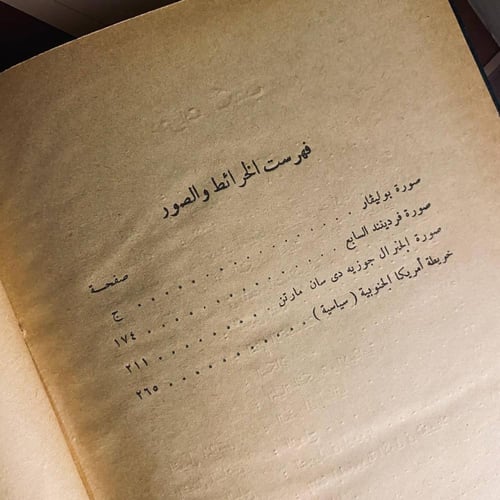 فهرست الخرائط والصور
صفحة
صورة بوليڤار . . . . . . . . . . . . . . . ج
صورة فردينند السابع . . . . . . . . . . . . ١٧٤
صورة الجنرال جوزيه دى سان مارتن . . . . . . . . ٢١١
خريطة أمريكا الجنوبية ( سياسية ) . . . . . . . . . . ٢٦٥